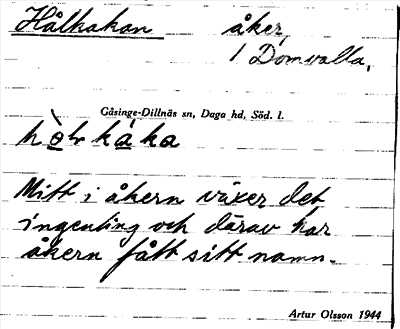 Hålkakan åker,
1 Domvalla,
Gåsinge-Dillnäs sn, Daga hd, Söd. l.
Mitt i åkern växer det
ingenting och därav har
åkern fått sitt namn.
Artur Olsson 1944